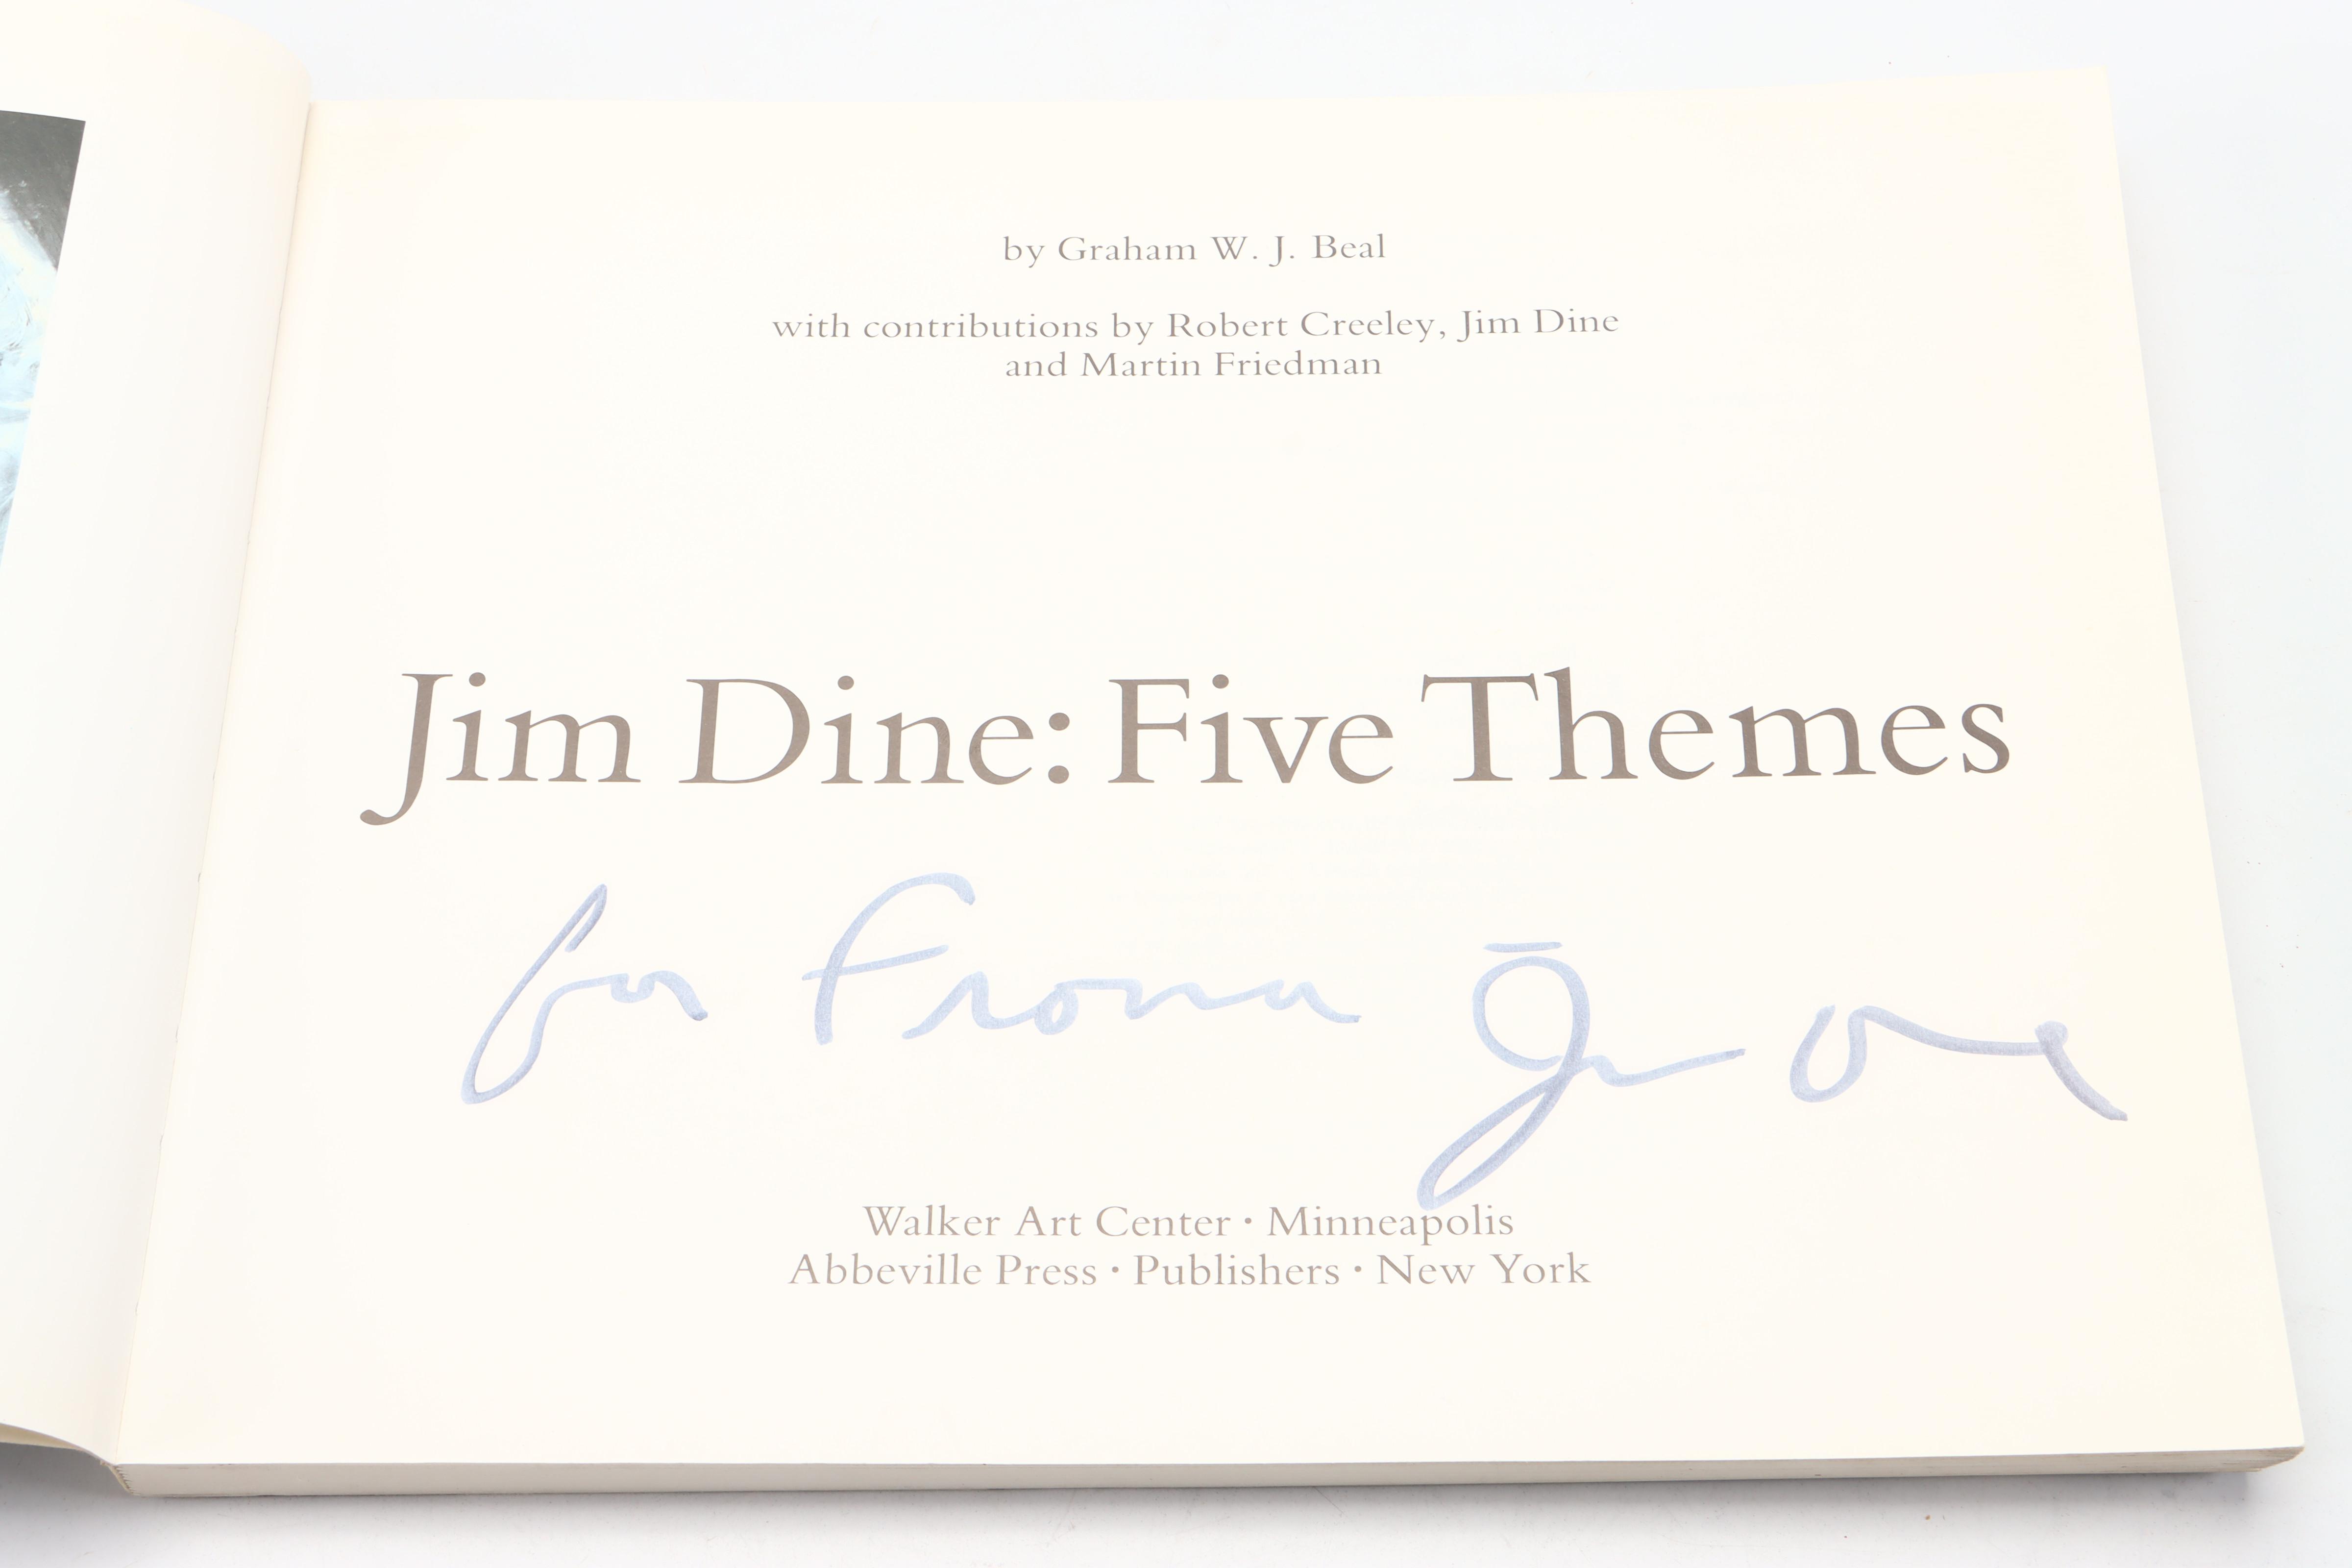 by Graham W. J. Beal
with contributions by Robert Creeley, Jim Dine
and Martin Friedman
Jim Dine: Five Themes
for Fiona Jim Dine
Walker Art Center • Minneapolis
Abbeville Press • Publishers • New York